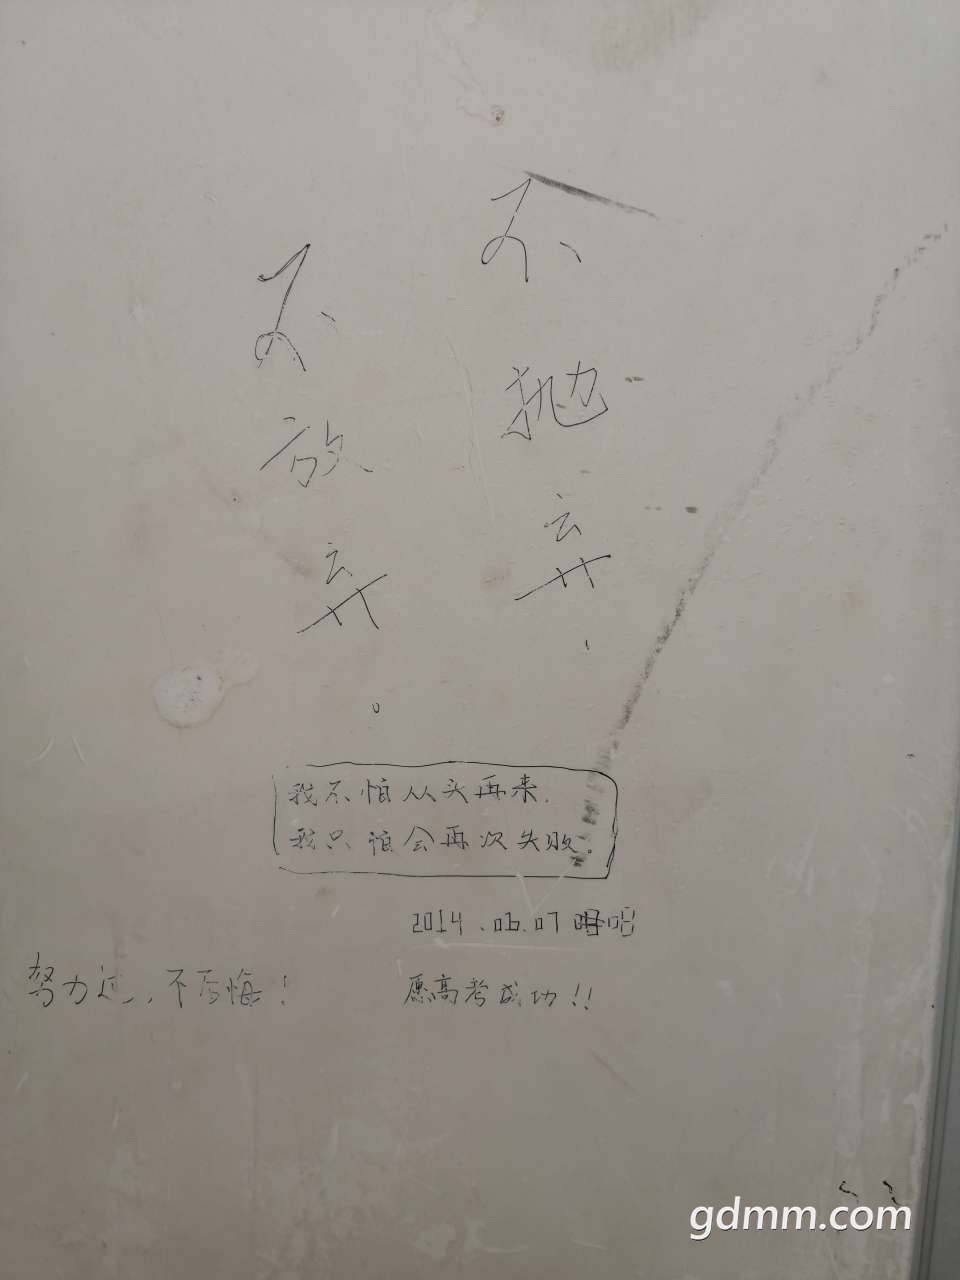 不抛弃、
不放弃。
我不怕从头再来.
我只怕会再次失败。
2014.06.07
努力过,不后悔!
愿高考成功!!
gdmm.com